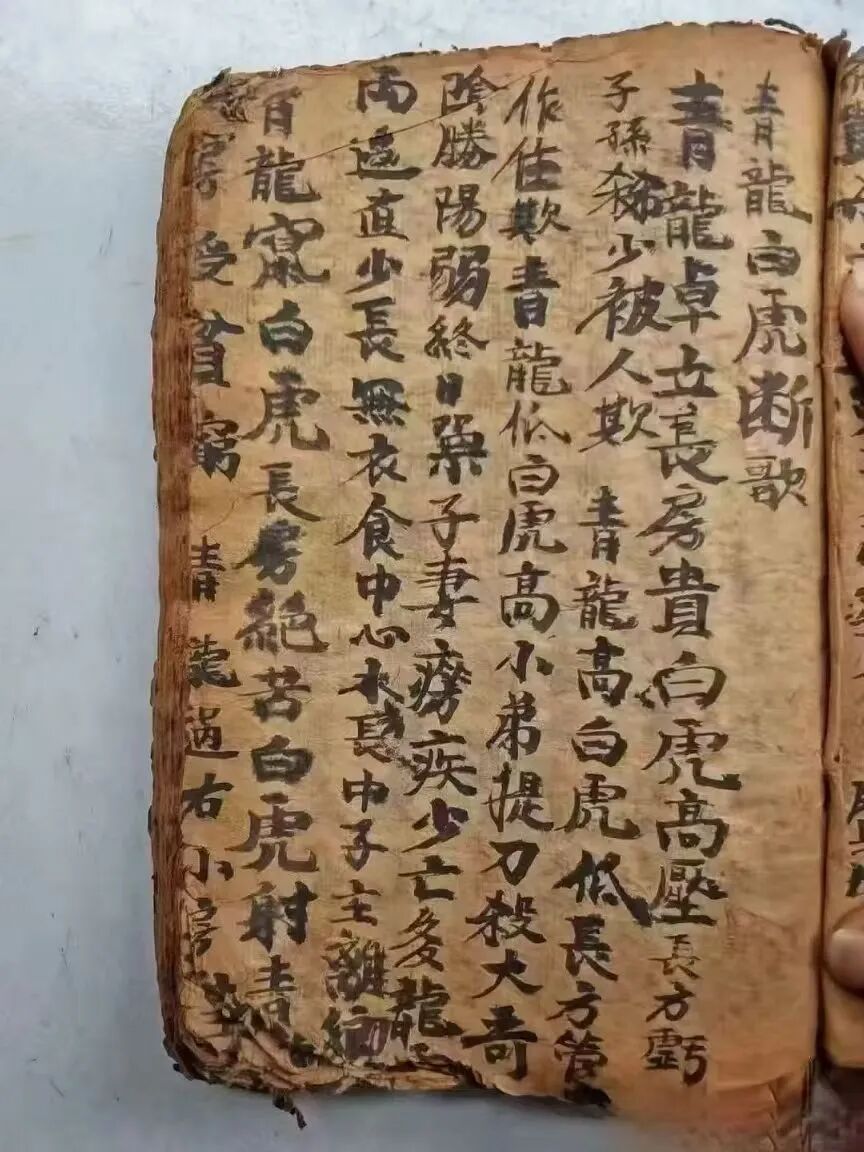 青龍白虎断歌
青龍卓立長房貴白虎高壓長方虧
子孫稀少被人欺 青龍高白虎低長方管
作住欺青龍低白虎高小弟提刀殺大哥
陰勝陽弱終日窮子妻癆疾少亡多龍
兩邊直少長無衣食中心水長中子主離鄉
青龍竄白虎長房絕苦白虎射青
房受貧窮 青龍過右小房